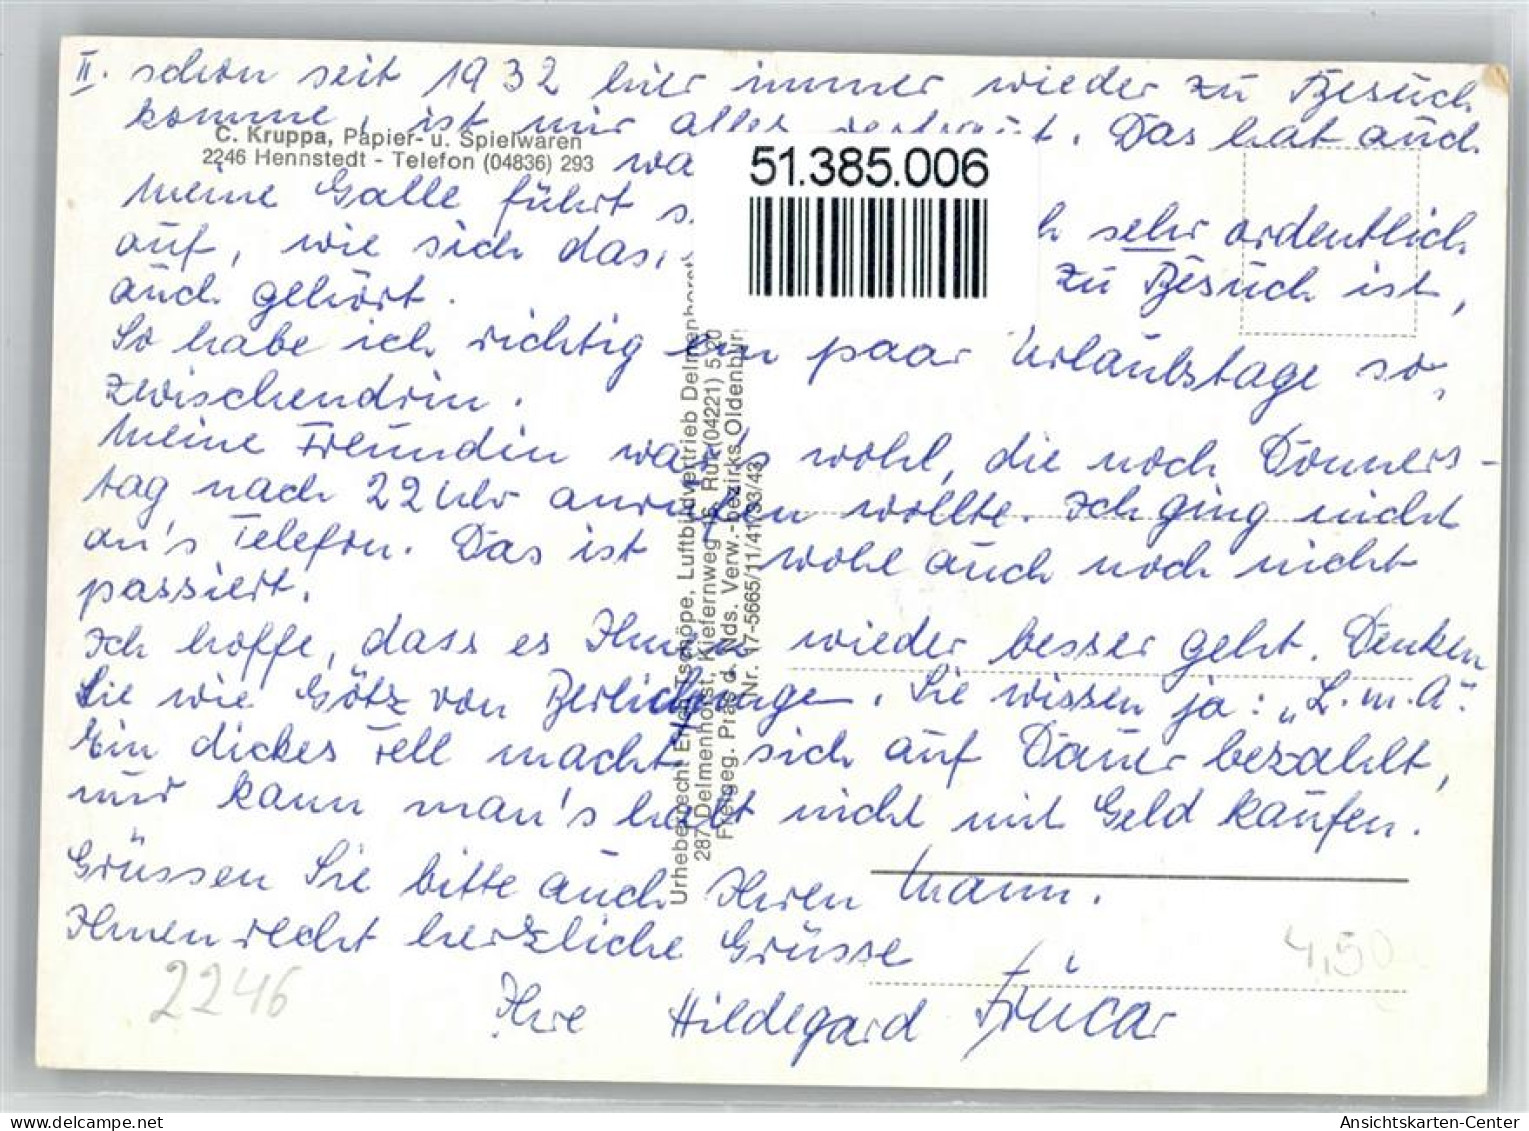 II. schon seit 1932 hier immer wieder zu Besuch
komme, ist mir alles vertraut. Das hat auch
C. Kruppa, Papier- u. Spielwaren
2246 Hennstedt - Telefon (04836) 293
51.385.006
meine Galle führt s. sehr ordentlich
auf, wie sich das, zu Besuch ist,
auch gehört.
So habe ich richtig ein paar Urlaubstage so,
zwischendrin.
Meine Freundin war's wohl, die noch Donners-
tag nach 22 Uhr anrufen wollte. Ich ging nicht
an's Telefon. Das ist wohl auch noch nicht
passiert.
Ich hoffe, dass es Ihnen wieder besser geht. Denken
Sie wie Götz von Berlichingen. Sie wissen ja: „L.m.A".
Ein dickes Fell macht sich auf Dauer bezahlt,
nur kann man's halt nicht mit Geld kaufen.
Grüssen Sie bitte auch Ihren Mann.
Ihnen recht herzliche Grüsse
Ihre Hildegard
Urheberrecht Erich Tschöpe, Luftbildvertrieb Delmenhorst
287 Delmenhorst, Kiefernweg 16, Ruf (04221) 5 20
Freigeg. Präs d. Nds. Verw.-bezirks Oldenburg
Nr. 17-5665/11/41/33/43
2246
4,50
Ansichtskarten-Center
www.delcampe.net